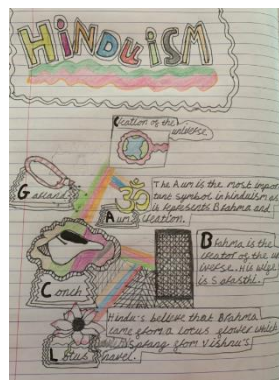 HINDUISM
Creation of the
universe
Garland
Aum
The Aum is the most impor
tant symbol in hinduism as
it represents Brahma and
creation.
Conch
Brahma is the
creator of the un
iverse. His wife
is Sarasthi.
Lotus
Hindu's believe that Brahma
came from a lotus flower which
sprang from Vishnu's
navel.